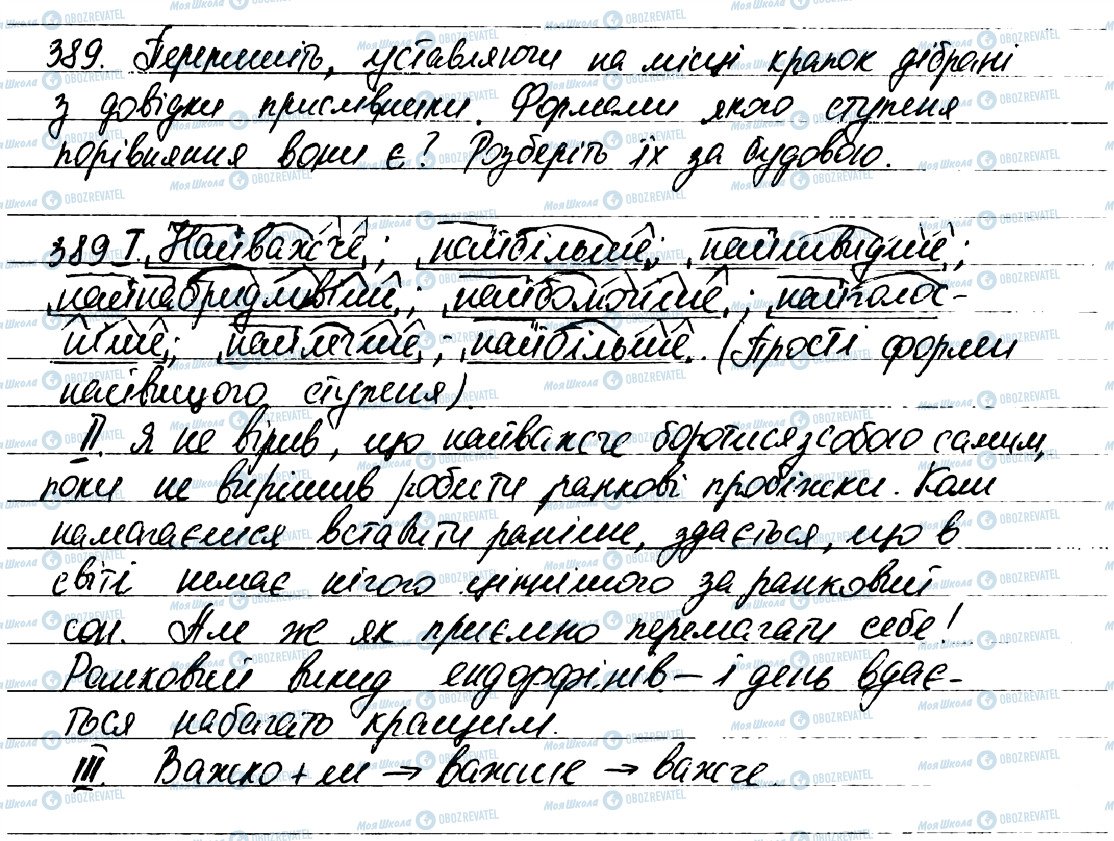 389. Перепишіть, уставляючи на місці крапок дібрані
з довідки прислівники. Формами якого ступеня
порівняння вони є? Розберіть їх за будовою.
389 I. Найважче; найбільше; найшвидше;
найнабридливіше; найболючіше; найголос-
ніше; найлегше; найбільше. (Прості форми
найвищого ступеня).
II. Я не вірив, що найважче боротися з собою самим,
поки не вирішив робити ранкові пробіжки. Коли
намагаєшся вставати раніше, здається, що в
світі немає нічого ціннішого за ранковий
сон. Але же як приємно перемагати себе!
Ранковий викид ендорфінів – і день вдає-
ться набагато кращим.
III. Важко + ш → важше → важче.